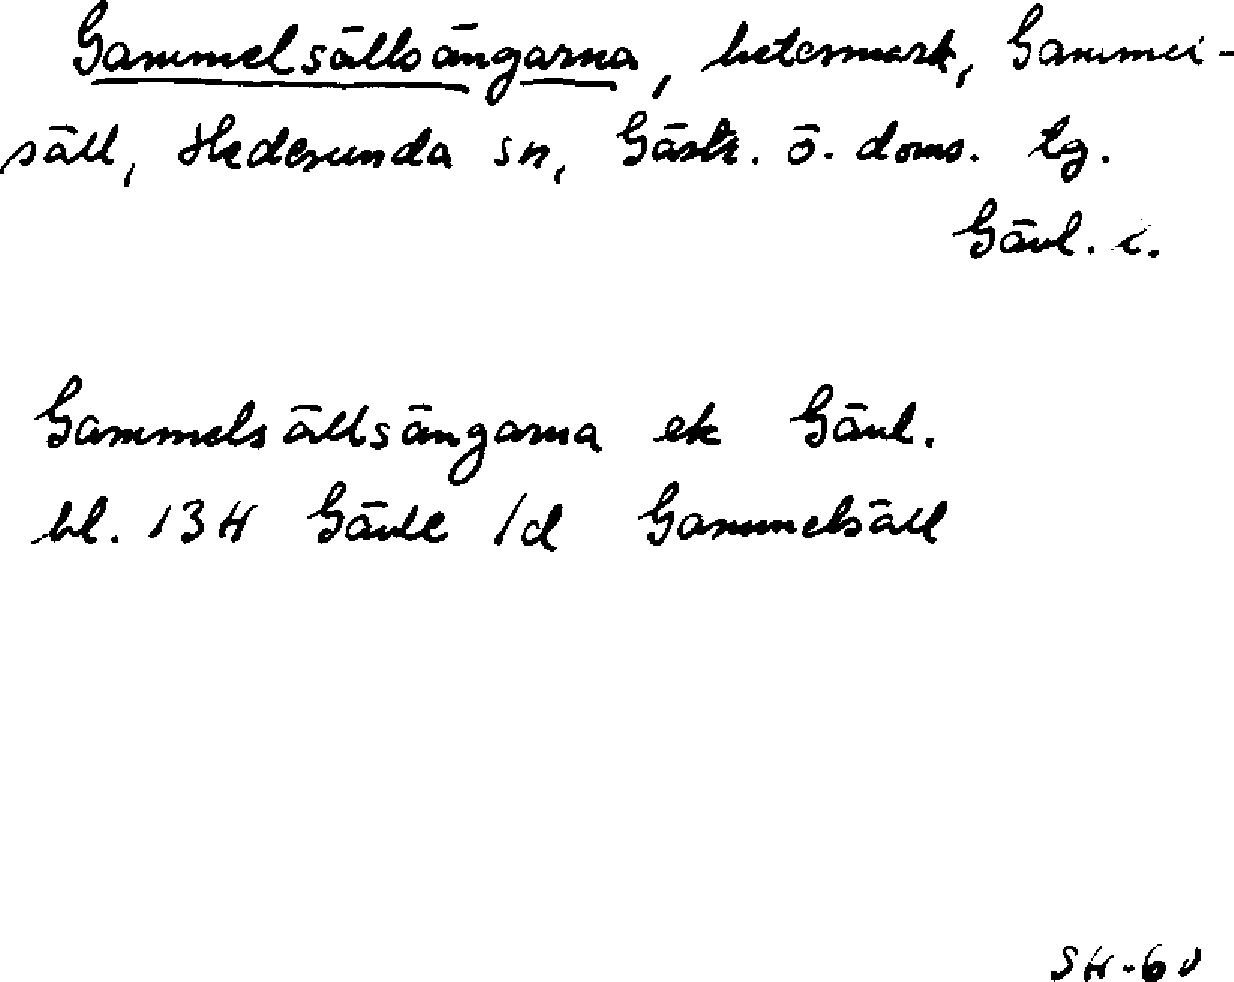 Gammelsällsängarna, betesmark, Gammel-
säll, Hedesunda sn, Gästr. ö. doms. tg.
Gävl. l.
Gammelsällsängarna ek Gävl.
bl. 13H Gävle 1d Gammelsäll